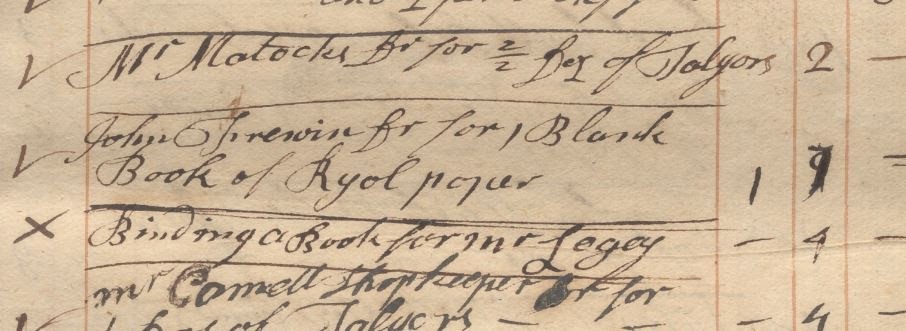 Mr Matocks Dr for 2/2 Doz of Salyors 2 –
John Threwin Dr for 1 Blank
Book of Ryol paper 1
Binding a Book for mr Legey – 4 –
mr Comell Shopkeeper Dr for
of Salyers – – 4 –